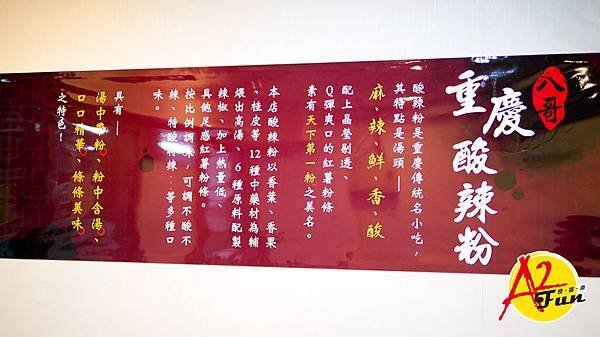 八哥
重慶酸辣粉
酸辣粉是重慶傳統名小吃,
其特點是湯頭—
麻、辣、鮮、香、酸
配上晶瑩剔透、
Q彈爽口的紅薯粉條
素有天下第一粉之美名。
本店酸辣粉以香葉、香果
、桂皮等12種中藥材為輔
煨出高湯、6種原料配製
辣椒、加上熱量低、
具飽足感紅薯粉條。
按比例調味、可調不酸不
辣、特酸特辣..等多種口
味。
具有—
湯中帶粉、粉中含湯、
口口精華、條條美味
之特色!
A2
Fun